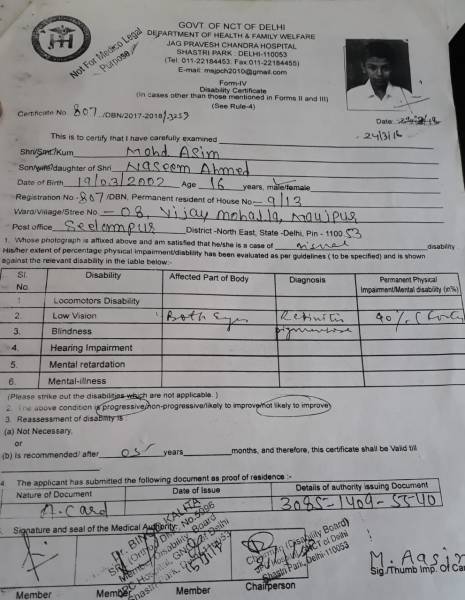 GOVT. OF NCT OF DELHI
DEPARTMENT OF HEALTH & FAMILY WELFARE
JAG PRAVESH CHANDRA HOSPITAL
SHASTRI PARK : DELHI-110053
(Tel. 011-22184453, Fax:011-22184455)
E-mail: majpch2010@gmail.com
Not For Medico Legal Purpose
Form-IV
Disability Certificate
(In cases other than those mentioned in Forms II and III)
(See Rule-4)
Certificate No. 807 /DBN/2017-2018/
Date:
24/3/18
This is to certify that I have carefully examined
Shri/Smt./Kum Mohd Asim
Son/wife/daughter of Shri Naseem Ahmed
Date of Birth 19/03/2002 Age 16 years, male/female
Registration No -807/DBN, Permanent resident of House No - 9/13
Ward/Village/Stree No. - 08, Vijay mohalla, Maujpur
Post office Seelampur District -North East, State -Delhi, Pin - 110053
1. Whose photograph is affixed above and am satisfied that he/she is a case of visual disability
His/her extent of percentage physical impairment/disability has been evaluated as per guidelines ( to be specified) and is shown
against the relevant disability in the table below:-
Sl. No. Disability Affected Part of Body Diagnosis Permanent Physical Impairment/Mental disability (in%)
1 Locomotors Disability
2. Low Vision Both Eyes Retinitis pigmentosa 40%
3. Blindness
4. Hearing Impairment
5. Mental retardation
6. Mental-illness
(Please strike out the disabilities which are not applicable. )
2. The above condition is progressive/non-progressive/likely to improve/not likely to improve
3. Reassessment of disability is :
(a) Not Necessary,
or
(b) Is recommended/ after 05 years months, and therefore, this certificate shall be Valid till
4 The applicant has submitted the following document as proof of residence :-
Nature of Document Date of Issue Details of authority issuing Document
A. Card 3085-1409-5540
5. Signature and seal of the Medical Authority:
Member (Disability Board)
Chairman (Disability Board)
Shastri Park, Delhi-110053
Member Member Chairperson
M. Aasim
Sig./Thumb Imp of